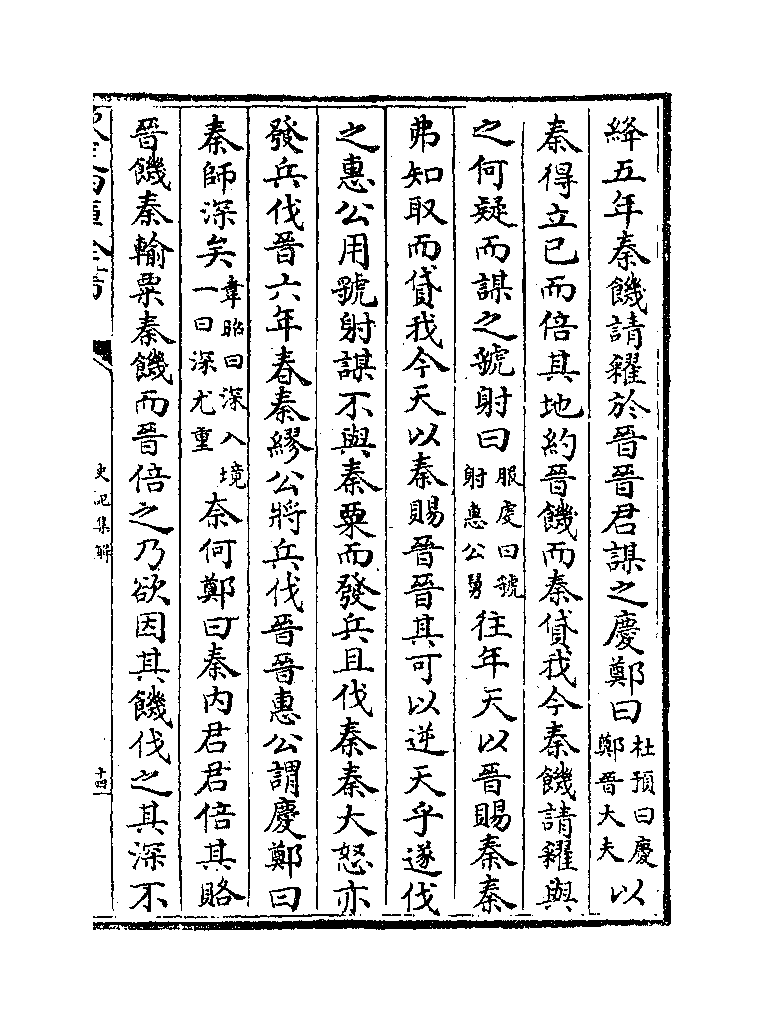 絳五年秦饑請糴於晉晉君謀之慶鄭曰杜預曰慶鄭晉大夫以
秦得立已而倍其地約晉饑而秦貸我今秦饑請糴與
之何疑而謀之虢射曰服虔曰虢射惠公舅往年天以晉賜秦秦
弗知取而貸我今天以秦賜晉晉其可以逆天乎遂伐
之惠公用虢射謀不與秦粟而發兵且伐秦秦大怒亦
發兵伐晉六年春秦繆公將兵伐晉晉惠公謂慶鄭曰
秦師深矣韋昭曰深入境一曰深尤重奈何鄭曰秦内君君倍其賂
晉饑秦輸粟秦饑而晉倍之乃欲因其饑伐之其深不
史記集解
十四